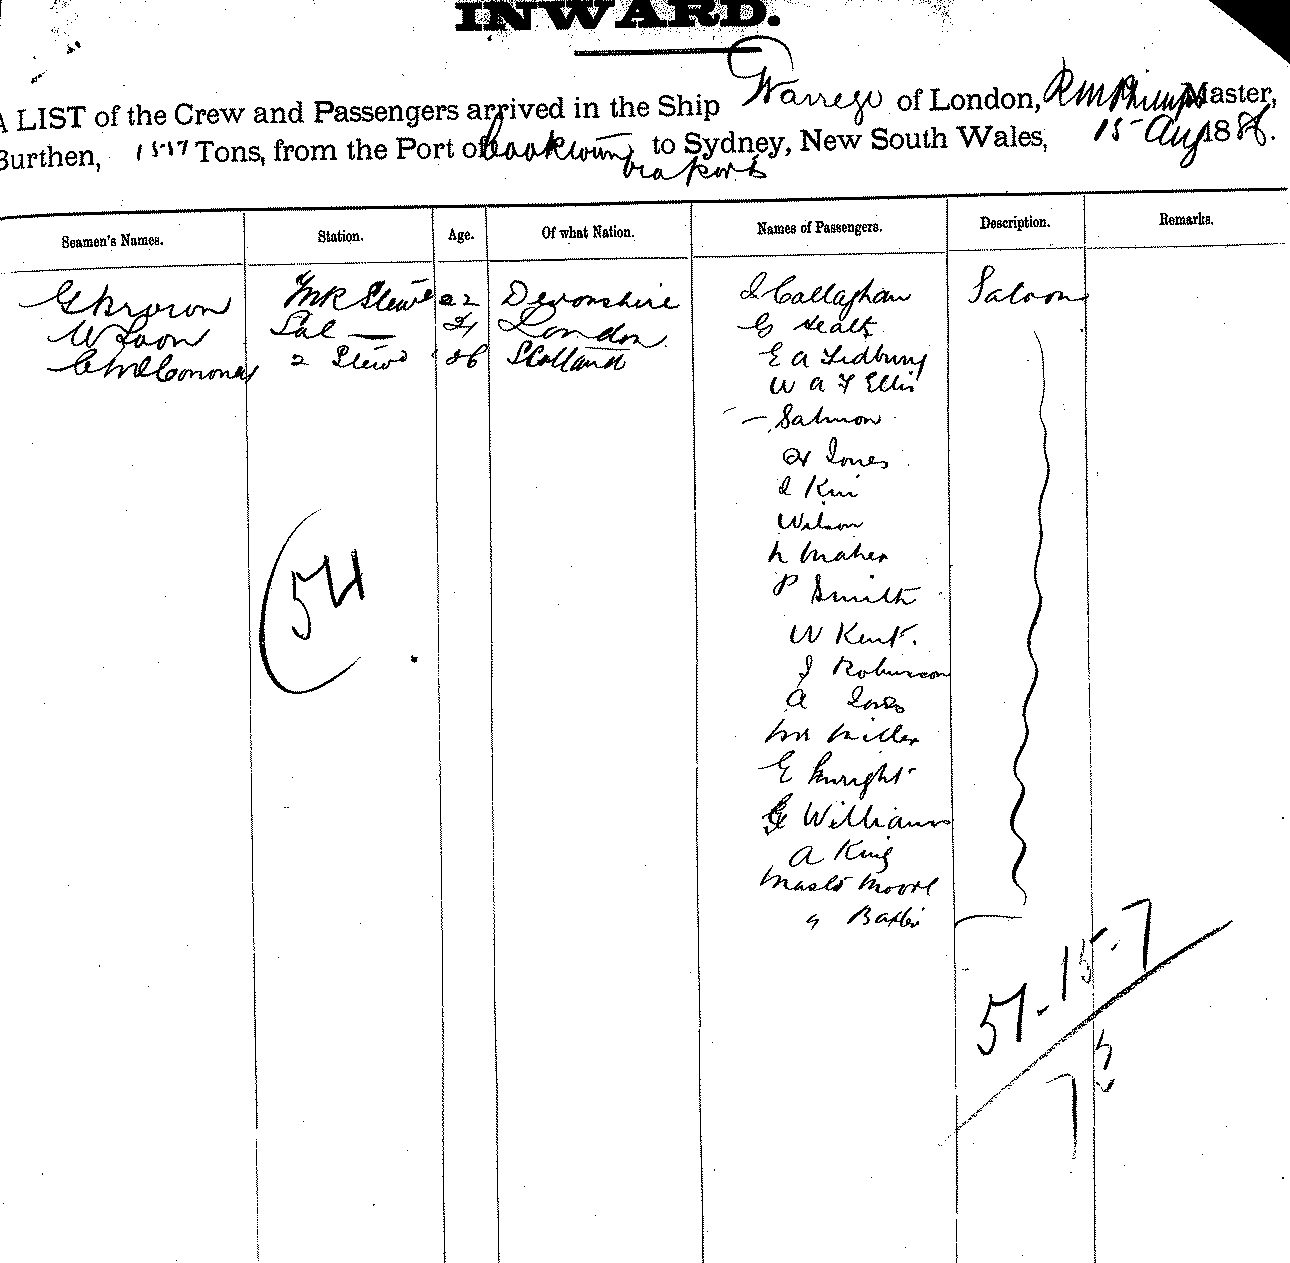 INWARD.
A LIST of the Crew and Passengers arrived in the Ship Warrego of London, R M Phillips Master,
Burthen, 1517 Tons, from the Port of Cooktown to Sydney, New South Wales, 15 Aug 188
via ports
Seamen's Names. Station. Age. Of what Nation. Names of Passengers. Description. Remarks.
22 Devonshire J Callaghan Saloon
W Sal — London G
2 Stewd Scotland E A Ledbury
W A F Ellis
— Salmon
Jones
J
Wilson
Maher
P Smith
W Kent.
J Robinson
A Jones
Miller
E Enright
G Williams
A King
Mastr Moore
Baxter
54
57-15-7
73